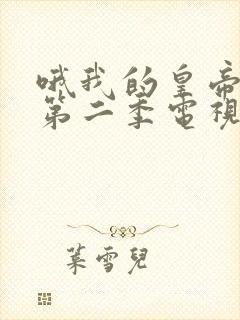 哦我的皇帝
第二季電視
葉雪兒